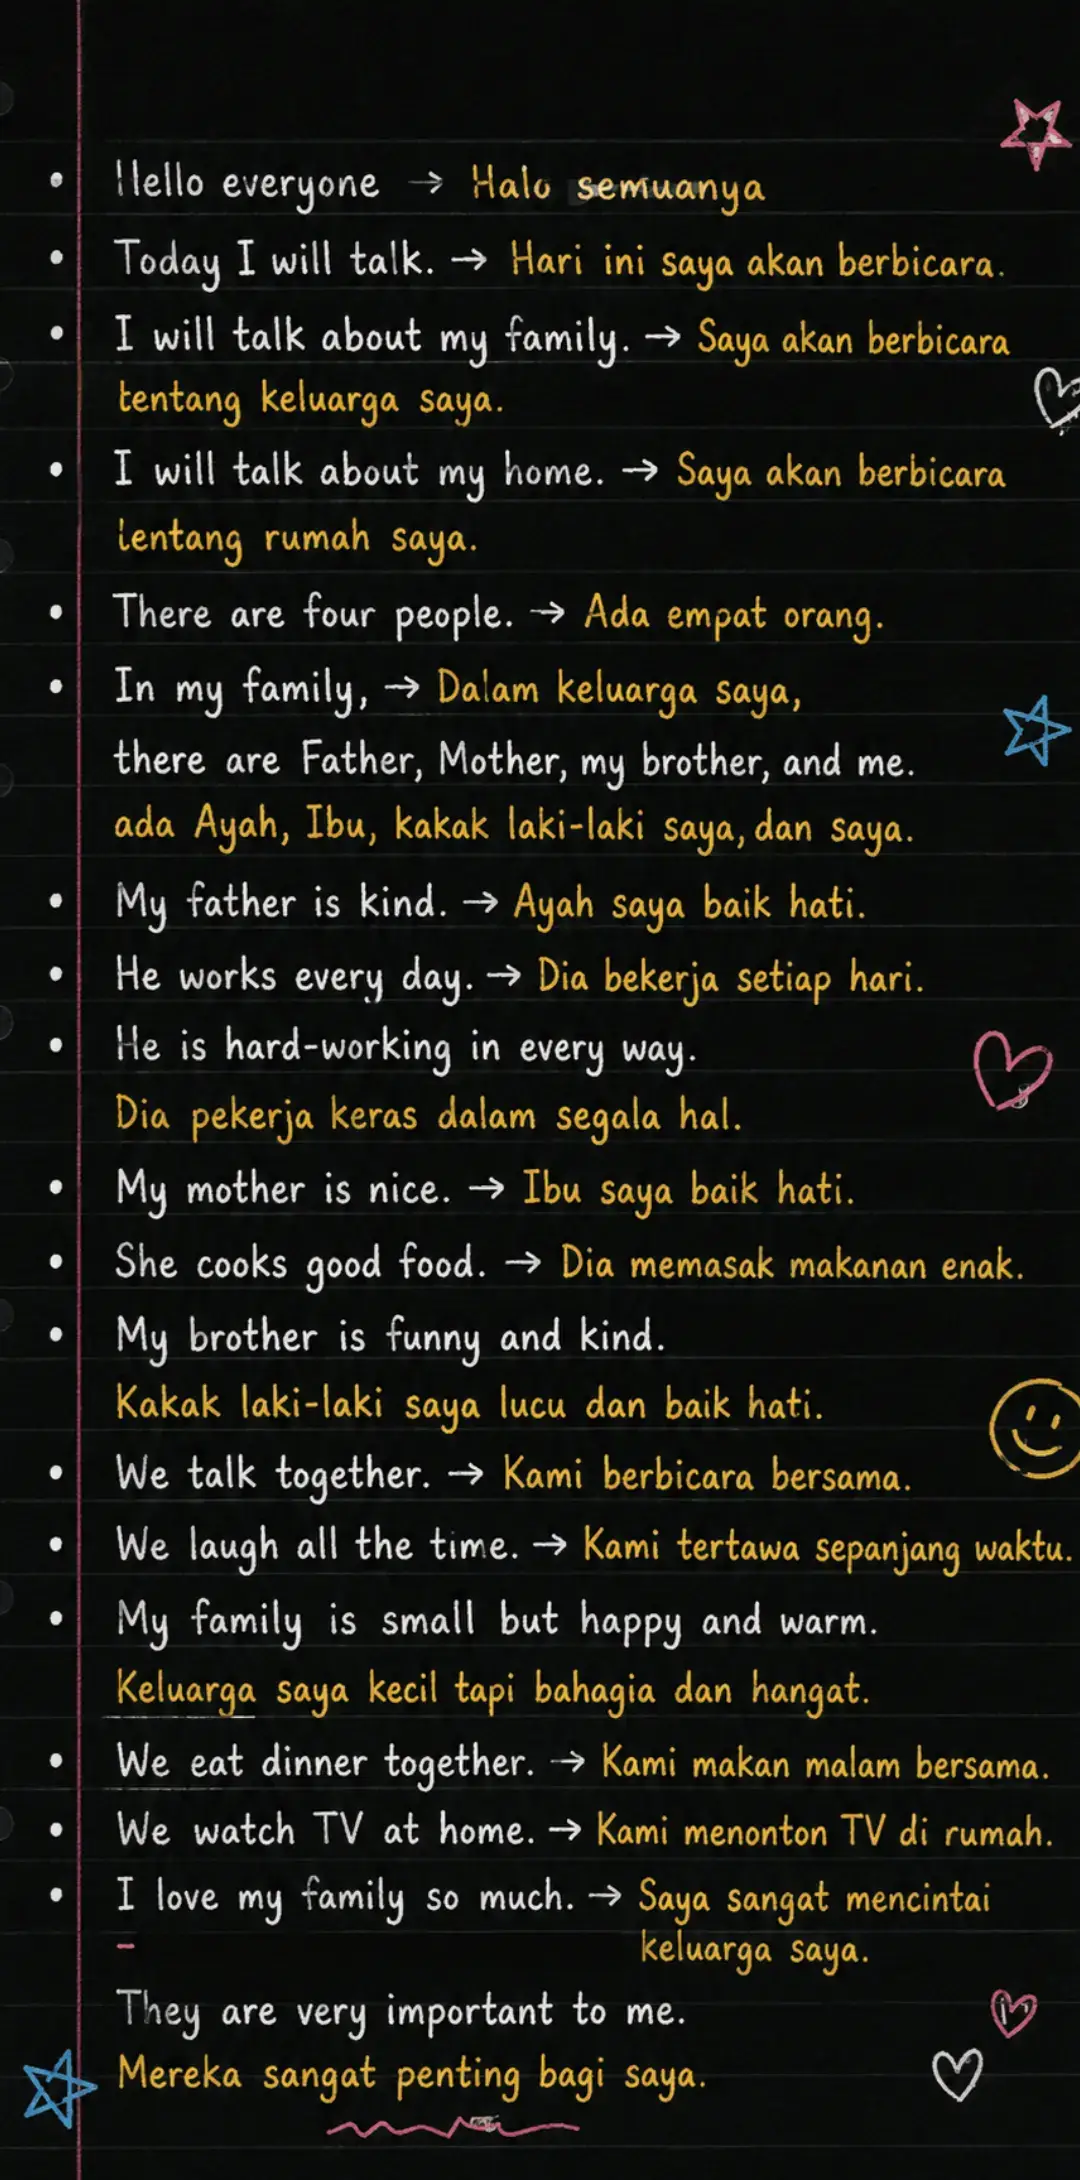 • Hello everyone → Halo semuanya
• Today I will talk. → Hari ini saya akan berbicara.
• I will talk about my family. → Saya akan berbicara
tentang keluarga saya.
• I will talk about my home. → Saya akan berbicara
tentang rumah saya.
• There are four people. → Ada empat orang.
• In my family, → Dalam keluarga saya,
there are Father, Mother, my brother, and me.
ada Ayah, Ibu, kakak laki-laki saya, dan saya.
• My father is kind. → Ayah saya baik hati.
• He works every day. → Dia bekerja setiap hari.
• He is hard-working in every way.
Dia pekerja keras dalam segala hal.
• My mother is nice. → Ibu saya baik hati.
• She cooks good food. → Dia memasak makanan enak.
• My brother is funny and kind.
Kakak laki-laki saya lucu dan baik hati.
• We talk together. → Kami berbicara bersama.
• We laugh all the time. → Kami tertawa sepanjang waktu.
• My family is small but happy and warm.
Keluarga saya kecil tapi bahagia dan hangat.
• We eat dinner together. → Kami makan malam bersama.
• We watch TV at home. → Kami menonton TV di rumah.
• I love my family so much. → Saya sangat mencintai
keluarga saya.
They are very important to me.
Mereka sangat penting bagi saya.